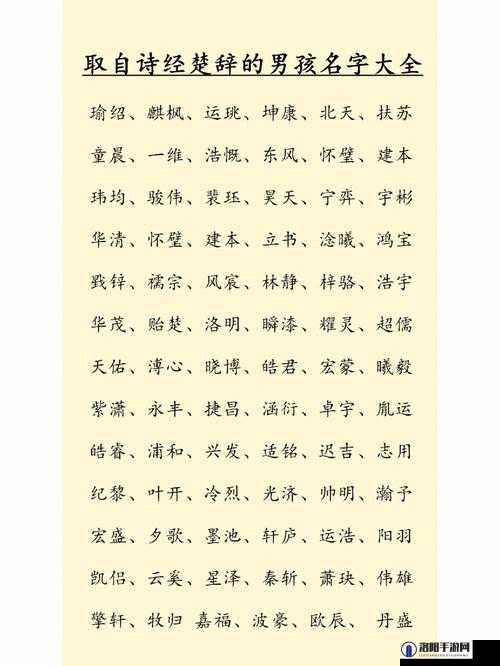 取自诗经楚辞的男孩名字大全
瑜绍、麒枫、运珧、坤康、北天、扶苏
童晨、一维、浩慨、东风、怀璧、建本
玮均、骏伟、裴珏、昊天、宁弈、宇彬
华清、怀璧、建本、立书、淰曦、鸿宝
戬锌、禧宗、风宸、林静、梓骆、浩宇
华茂、贻楚、洛明、瞬漆、耀灵、超儒
天佑、溥心、晓博、皓君、宏蒙、曦毅
紫潇、永丰、捷昌、涵衍、卓宇、胤运
皓睿、浦和、兴发、适铭、迟吉、志用
纪黎、叶开、冷烈、光济、帅明、瀚予
宏盛、夕歌、墨池、轩庐、运浩、阳羽
凯侣、云奚、星泽、秦斩、萧玦、伟雄
擎轩、牧归 嘉福、波豪、欧辰、 丹盛
洛阳手游网